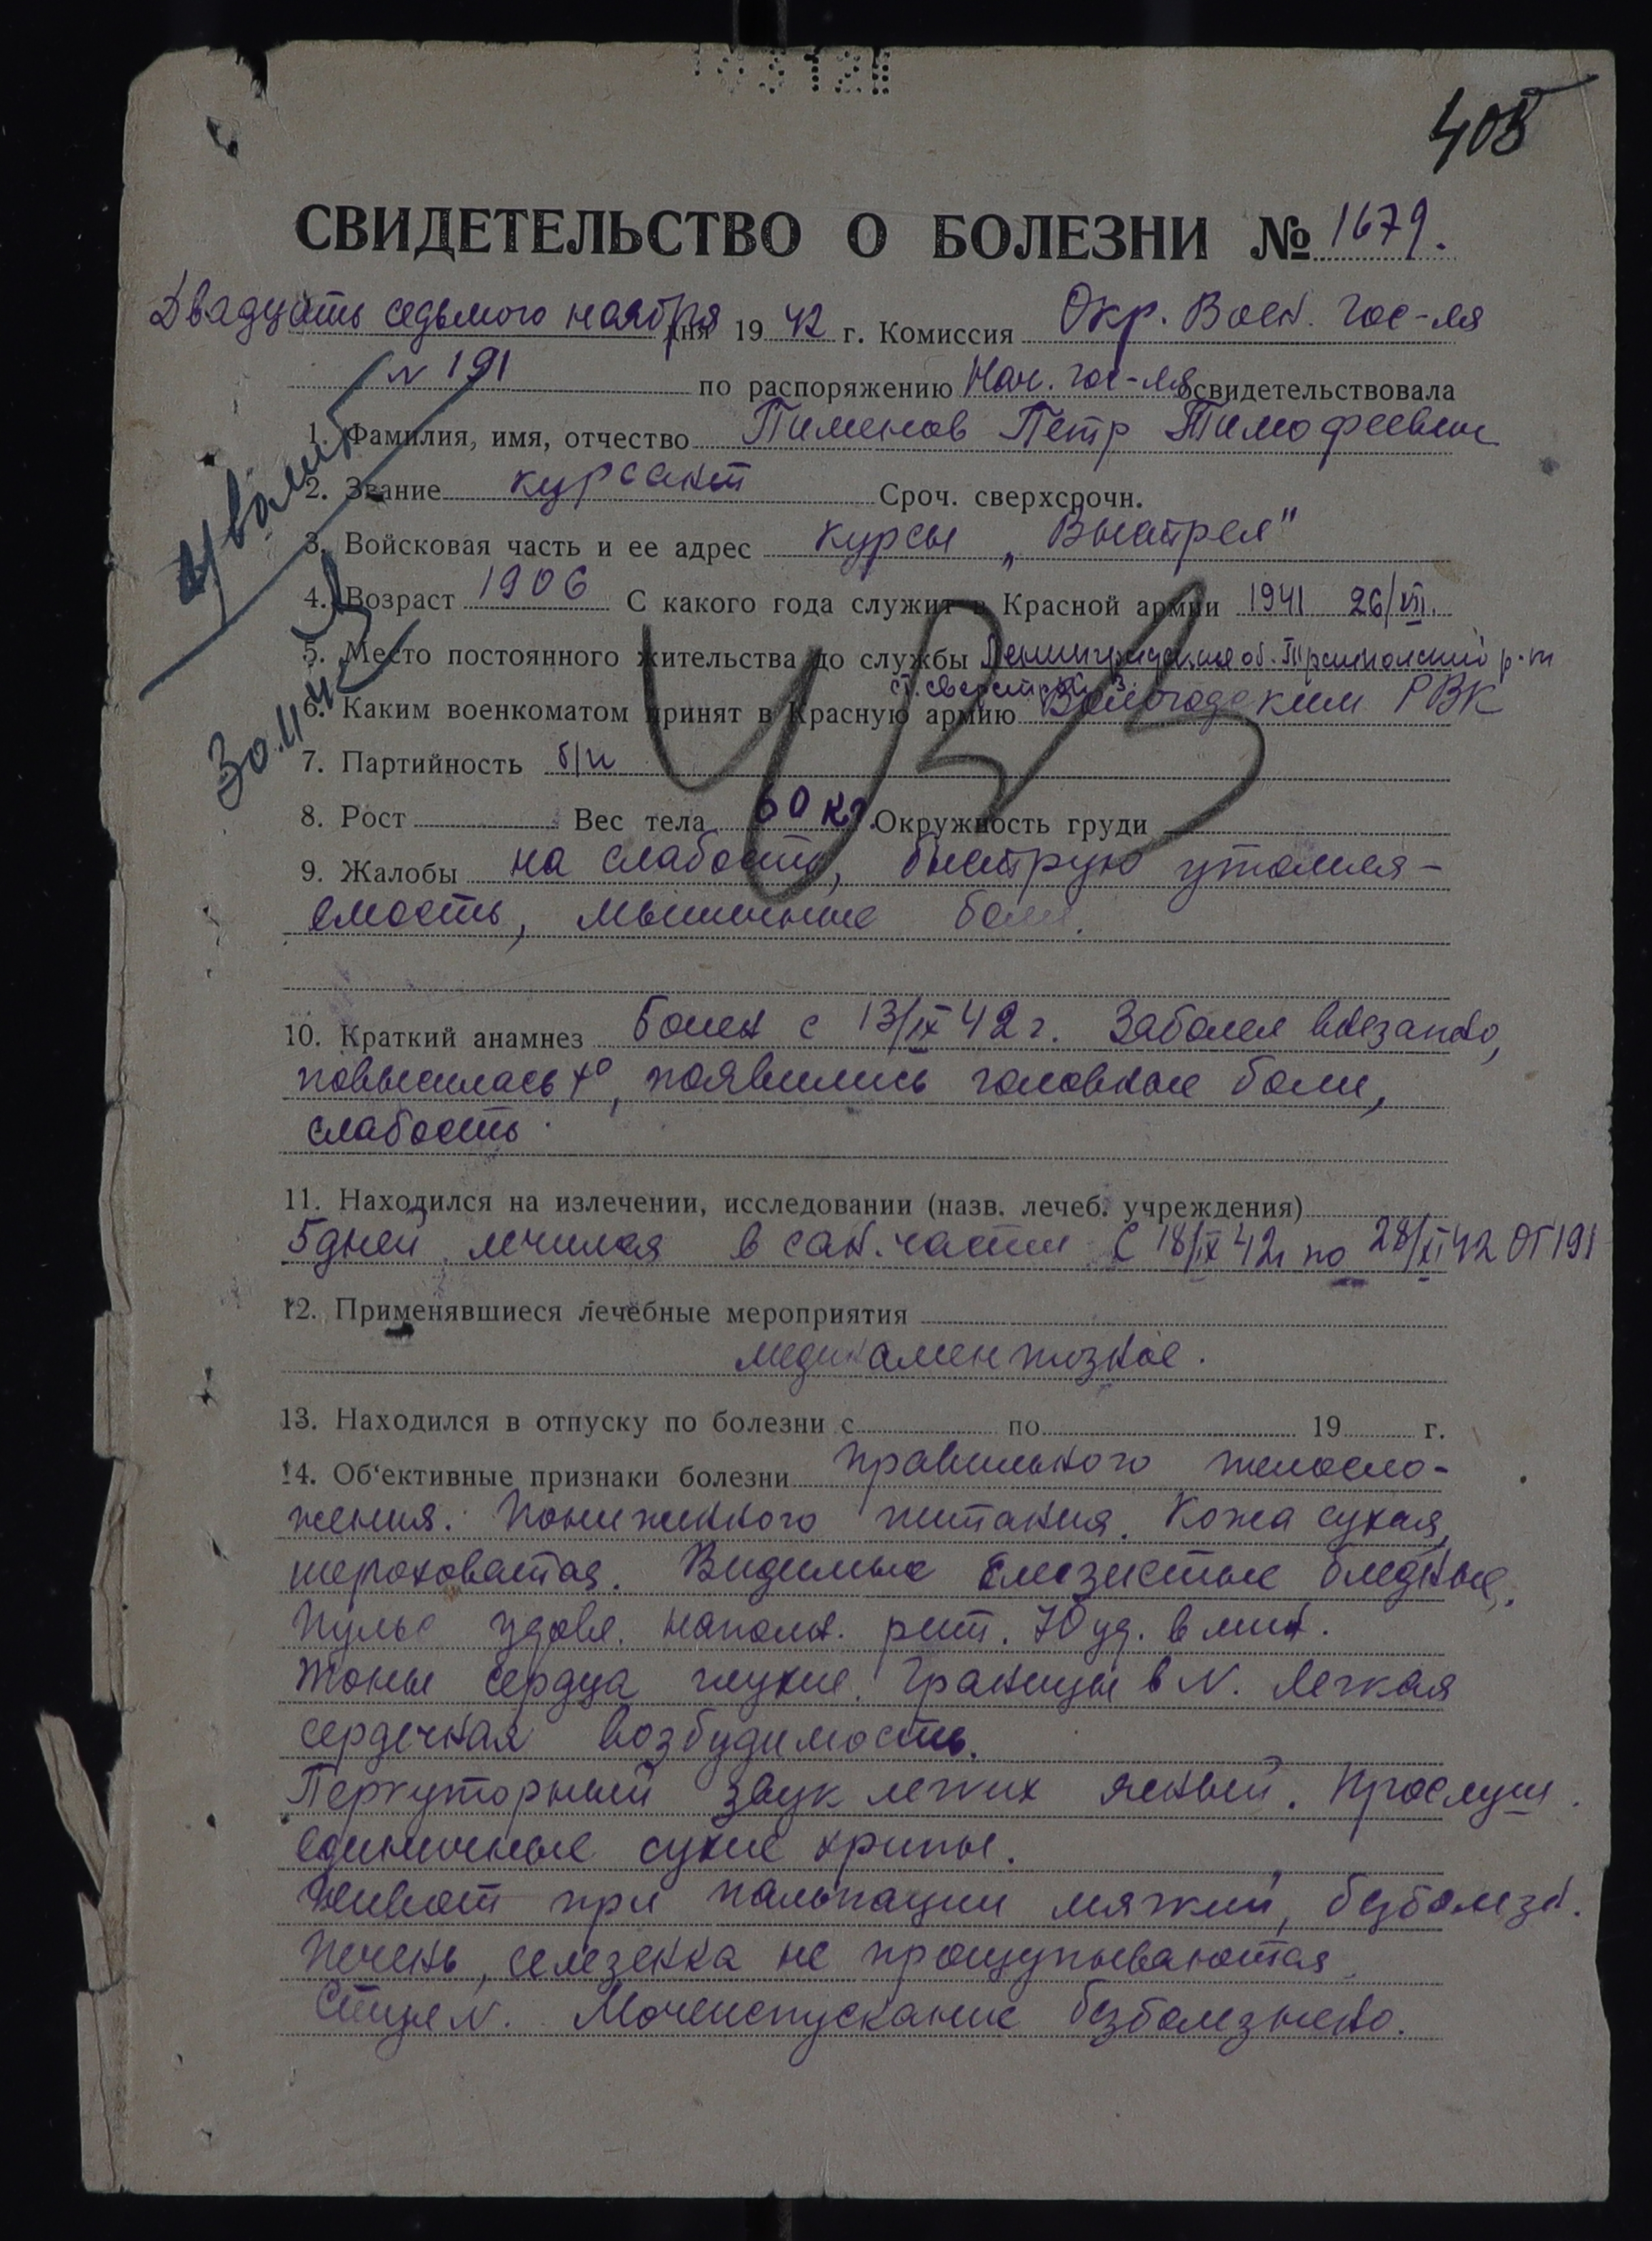 405
СВИДЕТЕЛЬСТВО О БОЛЕЗНИ № 1679.
Двадцать седьмого ноября дня 1942 г. Комиссия Окр. Воен. Гос-ля
N 191 по распоряжению Нач. гос-ля освидетельствовала
1. Фамилия, имя, отчество Пименов Петр Тимофеевич
2. Звание курсант Сроч. сверхсрочн.
3. Войсковая часть и ее адрес курсы „Выстрел"
4. Возраст 1906 С какого года служит в Красной армии 1941 26/VII.
5. Место постоянного жительства до службы Ленинградская об. р-н
6. Каким военкоматом принят в Красную армию Вологодским РВК
7. Партийность б/п
8. Рост Вес тела 60 кг. Окружность груди
9. Жалобы на слабость, быструю утомля-
емость, мышечные боли.
10. Краткий анамнез Болен с 13/IX 42 г. Заболел внезапно,
повысилась t°, появились головные боли,
слабость.
11. Находился на излечении, исследовании (назв. лечеб. учреждения)
5 дней лечился в сан. части С 18/IX 42г по 28/XI 42 ОГ 191
12. Применявшиеся лечебные мероприятия
медикаментозное.
13. Находился в отпуску по болезни с по 19 г.
14. Об‘ективные признаки болезни правильного телосло-
жения. Пониженного питания. Кожа сухая,
шероховатая. Видимые слизистые бледные.
Пульс удовл. наполн. рит. 70 уд. в мин.
Тоны сердца глухие. Границы в N. Легкая
сердечная возбудимость.
Перкуторный звук легких ясный. Прослуш.
единичные сухие хрипы.
Живот при пальпации мягкий, безболезн.
Печень, селезенка не прощупываются.
Стул N. Мочеиспускание безболезнено.